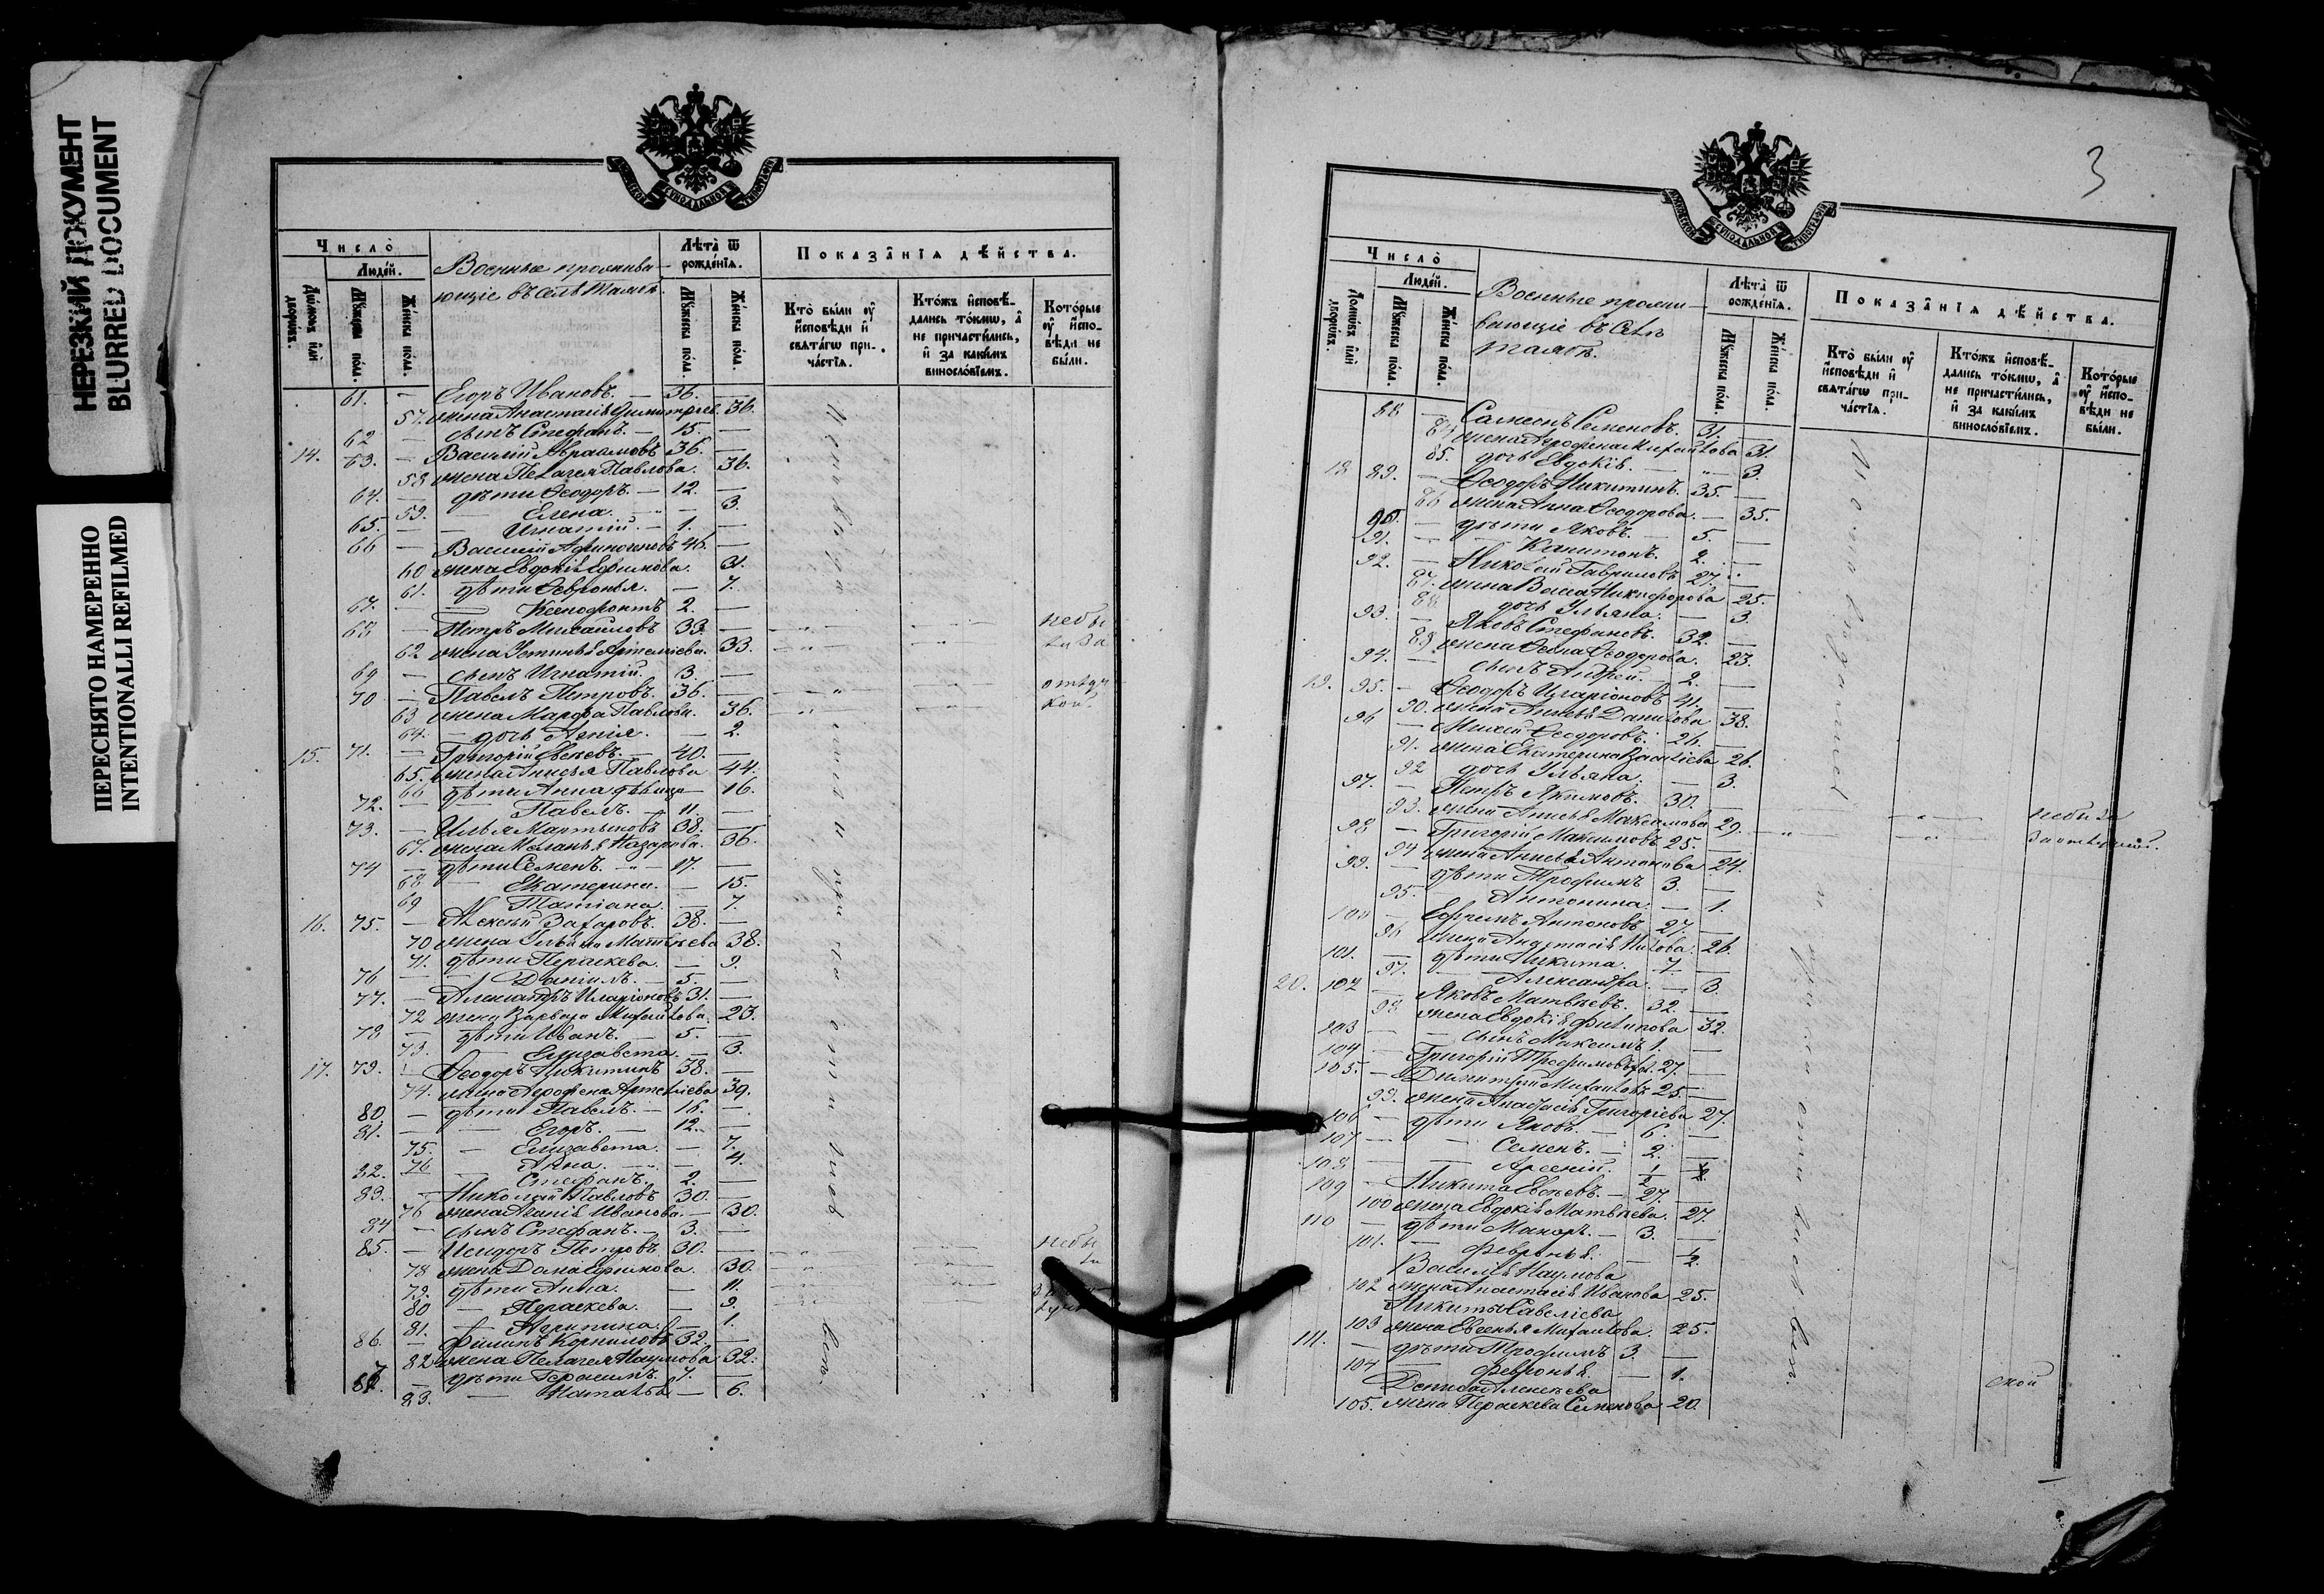 НЕРЕЗКИЙ ДОКУМЕНТ
BLURRED DOCUMENT
ПЕРЕСНЯТО НАМЕРЕННО
INTENTIONALLI REFILMED
Число̀
Людей.
Домѡвъ и҆лѝ дворѡвъ.
Мꙋ́жеска пола.
Же́нска пола.
Военные прожива-
ющіе въ селѣ
Лѣта̀ ѿ рожде́нїѧ.
Мꙋ́жеска пола.
Же́нска пола.
Показа̑нїѧ дѣ́йства.
Кто̀ бы́ли ᲂу҆ и҆сповѣди и҆ свѧта́гѡ при-ча́стїѧ.
Кто́жъ и҆сповѣ́-дались то́кмѡ, а҆ не причасти́лись, и҆ за каки́мъ винословїемъ.
Кото́рые ᲂу҆ и҆спо-вѣди не бы́ли.
61. — Егоръ Ивановъ. — 36. —
57. жена Анастасія Димитріев. 36.
62 — сынъ Стефанъ. — 15. —
14. 63. — Василій Авраамовъ 36. —
58 жена Пелагея Павлова. 36.
64. — дѣти Ѳеодоръ. — 12. —
59. — Елена. — 3.
65. — Игнатій. — 1. —
66 — Василій 46. —
60 жена Евдокія Ефимова. 31.
61. дѣти Ѳевронья. — 7.
67. — Ксенофонтъ 2. —
68 — Петръ Михайловъ 33. — небы
62 жена Устинья Артеміева. 33. ли за
69 — сынъ Игнатій. 3. —
70 — Павелъ Петровъ. 36. —
63 жена Марѳа Павлова. 36.
64. — дочь — 2.
15. 71. — Григорій Евсѣевъ. — 40. —
65. жена Анисья Павлова 44.
66 дѣти Анна дѣвица — 16.
72. — Павелъ. — 11. —
73. — Илья Мартыновъ 38. —
67. жена Меланья Назарова. 36.
74 — дѣти Семенъ. — 17. —
68 — Екатерина. — 15.
69 Татіана. — 7.
16. 75. — Алексѣй Захаровъ. 38. —
70 жена Матвѣева 38.
71. дѣти Параскева. — 9.
76 — Даніилъ. — 5. —
77. — Александръ Иларіоновъ 31. —
72 жена Варвара Михайлова. 23.
78 — дѣти Иванъ. — 5. —
73. — Елизавета. — 3.
17. 79. — Ѳеодоръ Никитинъ 38. —
74. жена Агрофена 39.
80 — дѣти Павелъ. — 16. —
81. — Егоръ. — 12. —
75. — Елизавета. — 7.
76 Анна. — 4.
82. — Стефанъ. 2. —
83. — Николай Павловъ 30. —
76 жена Агапія Иванова. — 30.
84 — сынъ Стефанъ. — 3. —
85. — Исидоръ Петровъ. 30. — небы
78 жена Домна Ефимова. 30. ли
79. дѣти Анна. — 11.
80 — Параскева. — 9.
81. — Агрипина. — 1.
86. — Филипъ Корниловъ 32. —
82 жена Пелагея Наумова 32.
87. — дѣти Герасимъ. 7. —
83. — Наталья — 6.
3
Число̀
Людей.
Домѡвъ и҆лѝ дворѡвъ.
Мꙋ́жеска пола.
Же́нска пола.
Военные прожи-
вающіе въ Селѣ
Лѣта̀ ѿ рожде́нїѧ.
Мꙋ́жеска пола.
Же́нска пола.
Показа̑нїѧ дѣ́йства.
Кто̀ бы́ли ᲂу҆ и҆сповѣди и҆ свѧта́гѡ при-ча́стїѧ.
Кто́жъ и҆сповѣ́-дались то́кмѡ, а҆ не причасти́лись, и҆ за каки́мъ винословїемъ.
Кото́рые ᲂу҆ и҆спо-вѣди не бы́ли.
88 — Семеновъ. 31. —
84. жена Агрофена Михайлова 31
85. дочь Евдокія. — 3.
18 89. — Ѳеодоръ Никитинъ. 35. —
86 жена Анна Ѳеодорова. — 35.
90. — дѣти Яковъ. — 5. —
91. — Капитонъ. 2. —
92. — Николай Гавриловъ 27. —
87. жена Васса Никифорова 25.
88 дочь Ульяна. — 3.
93. — Яковъ Стефановъ. 32. —
89. жена Ѳеодорова. 23.
94. — сынъ Андрей. — 2. —
19. 95. — Ѳеодоръ Иларіоновъ 41. —
90. жена Анисья Данилова 38.
96 — Михей Ѳеодоровъ. 26. —
91. жена Екатерина Василіева 26.
92 дочь Ульяна. — 3.
97. — Петръ Якимовъ. 30. —
93. жена Анисья Максимова 29.
98 — Григорій Максимовъ 25. —
94 жена Анисья Антонова 24.
99. — дѣти Трофимъ 3. —
95. Антонина. — 1.
100 — Ефремъ Антоновъ 27. —
96 жена Анастасія 26.
101. — дѣти Никита. 7 —
97. — Александра. — 3.
20. 102 — Яковъ Матвѣевъ. 32. —
98. жена Евдокія Филипова 32.
103 — сынъ Максимъ 1. —
104 — Григорій Трофимовъ 27. —
105. — Димитрій Михайловъ 25. —
99. жена Анастасія Григоріева 27.
106 — дѣти Яковъ. — 6. —
107 — Семенъ. — 2. —
108. — Арсеній. 1/2
109 — Никита Евсѣевъ. — 27. —
100 жена Евдокія Матвѣева. 27.
110 — дѣти Макаръ. — 3. —
101. — Февронья. — 1/2
Василья Наумова
102 жена Анастасія Иванова 25.
Никиты Савеліева
103 жена Евгенья Михайлова. 25.
111. — дѣти Трофимъ 3. —
104 — Февронья. — 1.
Дениса Алексѣева
105. жена Параскева Семенова 20.